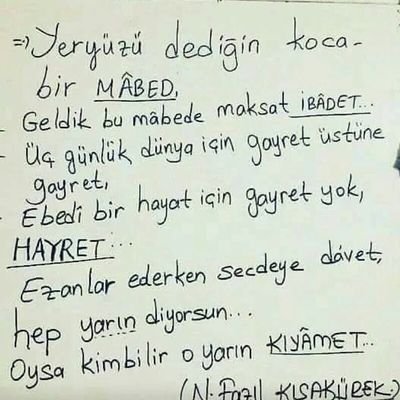 =>) Yeryüzü dediğin koca-
bir MÂBED,
Geldik bu mâbede maksat İBÂDET...
- Üç günlük dünya için gayret üstüne
gayret,
- Ebedi bir hayat için gayret yok,
HAYRET...
Ezanlar ederken secdeye dâvet,
hep yarın diyorsun...
Oysa kimbilir o yarın KIYÂMET...
(N. Fazıl KISAKÜREK.)